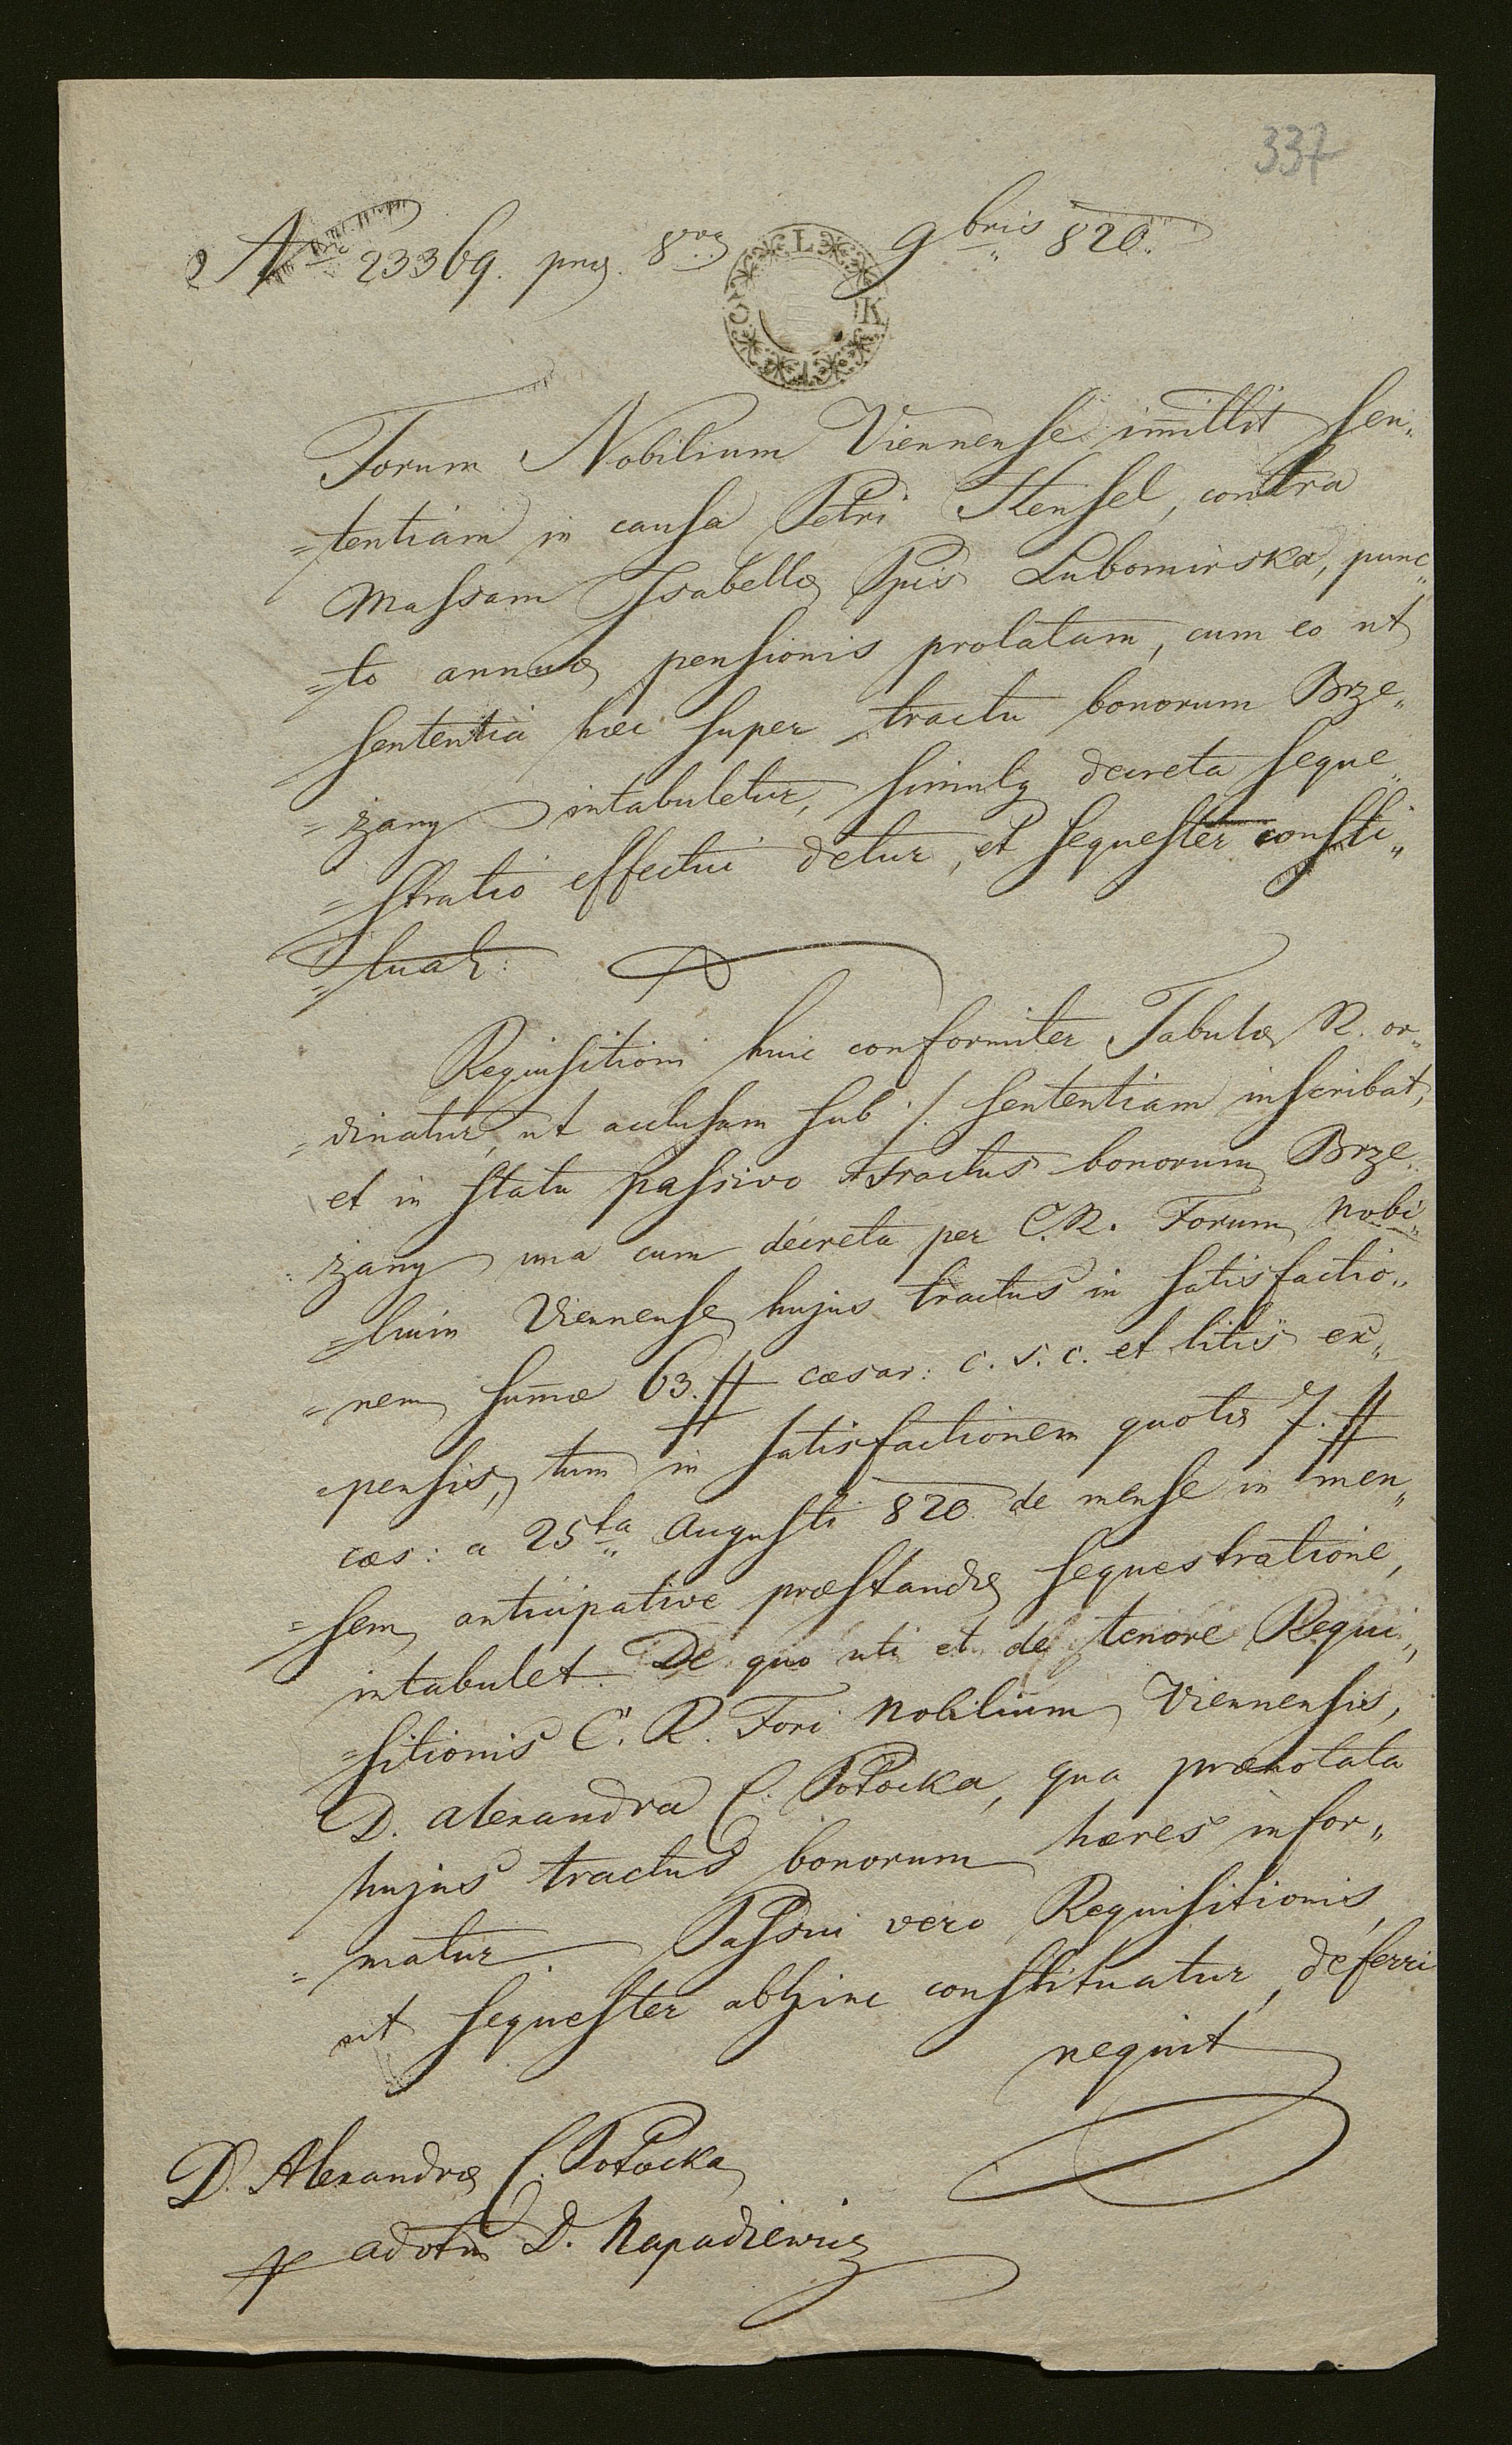 337
Nro 23369. pns. 8va 9bris 820.
L K I G
Forum Nobilium Viennense im̄ittit sen„
=tentiam in causa Petri Hensel, contra
Massam Isabellæ Ppis Lubomirska, punc„
=to annuæ pensionis prolatam, cum eo ut
sententia hæc super tractu bonorum Brze„
=zany intabuletur, simulq decreta seque„
=stratio effectui detur, et sequester consti„
=tuatr:
Requisitioni huic conformiter Tabulæ R. or„
=dinatur, ut acclusam sub ·/. sententiam inscribat,
et in statu passivo Tractus bonorum Brze„
=zany una cum decreta per C. R. Forum Nobi„
=lium Viennense hujus tractus in satisfactio„
=nem sum̄æ 63 f# cæsar: c. s. c. et litis ex„
=pensis, tum in satisfactionem quotæ 7. f#
cæs: a 25ta Augusti 820. de mense in men„
=sem anticipative præstandæ sequestratione,
intabulet. De quo uti et de tenore Requi„
=sitionis C. R. Fori Nobilium Viennensis,
D. Alexandra C. Potocka, qua prænotata
hujus tractus bonorum hæres infor„
=matur. Passui vero Requisitionis
ut sequester abhinc constituatur, deferri
nequit
D. Alexandræ C. Potocka
ad D.